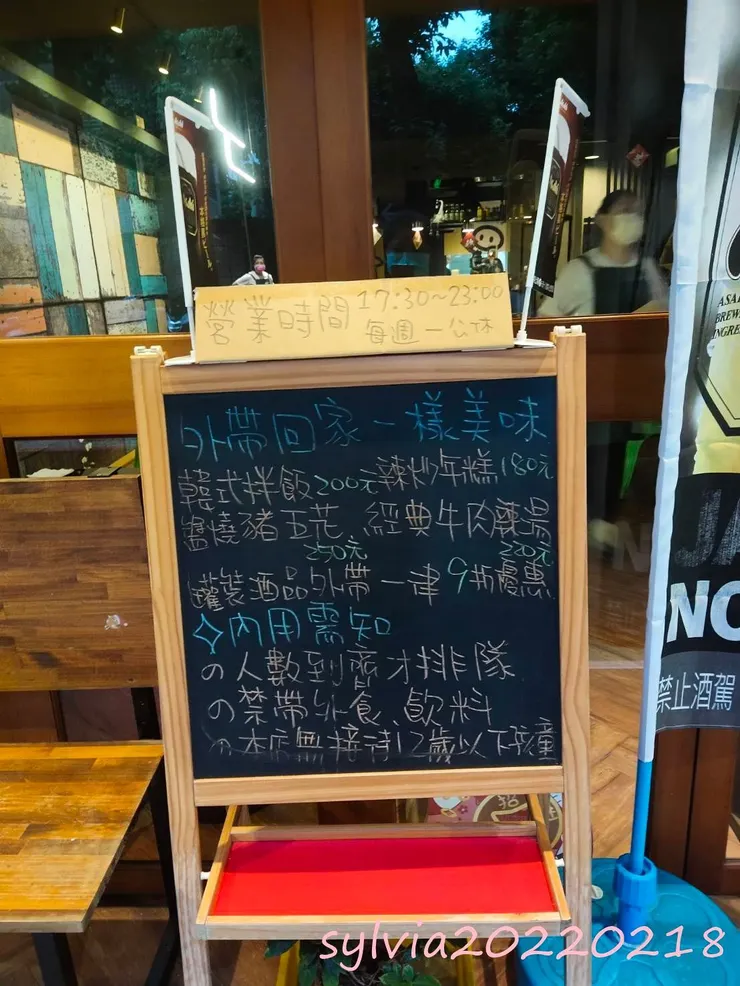 營業時間 17:30~23:00
每週一公休
外帶回家一樣美味
韓式拌飯200元 辣炒年糕180元
鹽燒豬五花 經典牛肉蔬湯
250元 220元
罐裝酒品外帶一律9折優惠
內用需知
の人數到齊才排隊
の禁帶外食、飲料
の本店無接待12歲以下孩童
ASAHI
BREW
INGRE
JA
NO
禁止酒駕
sylvia20220218